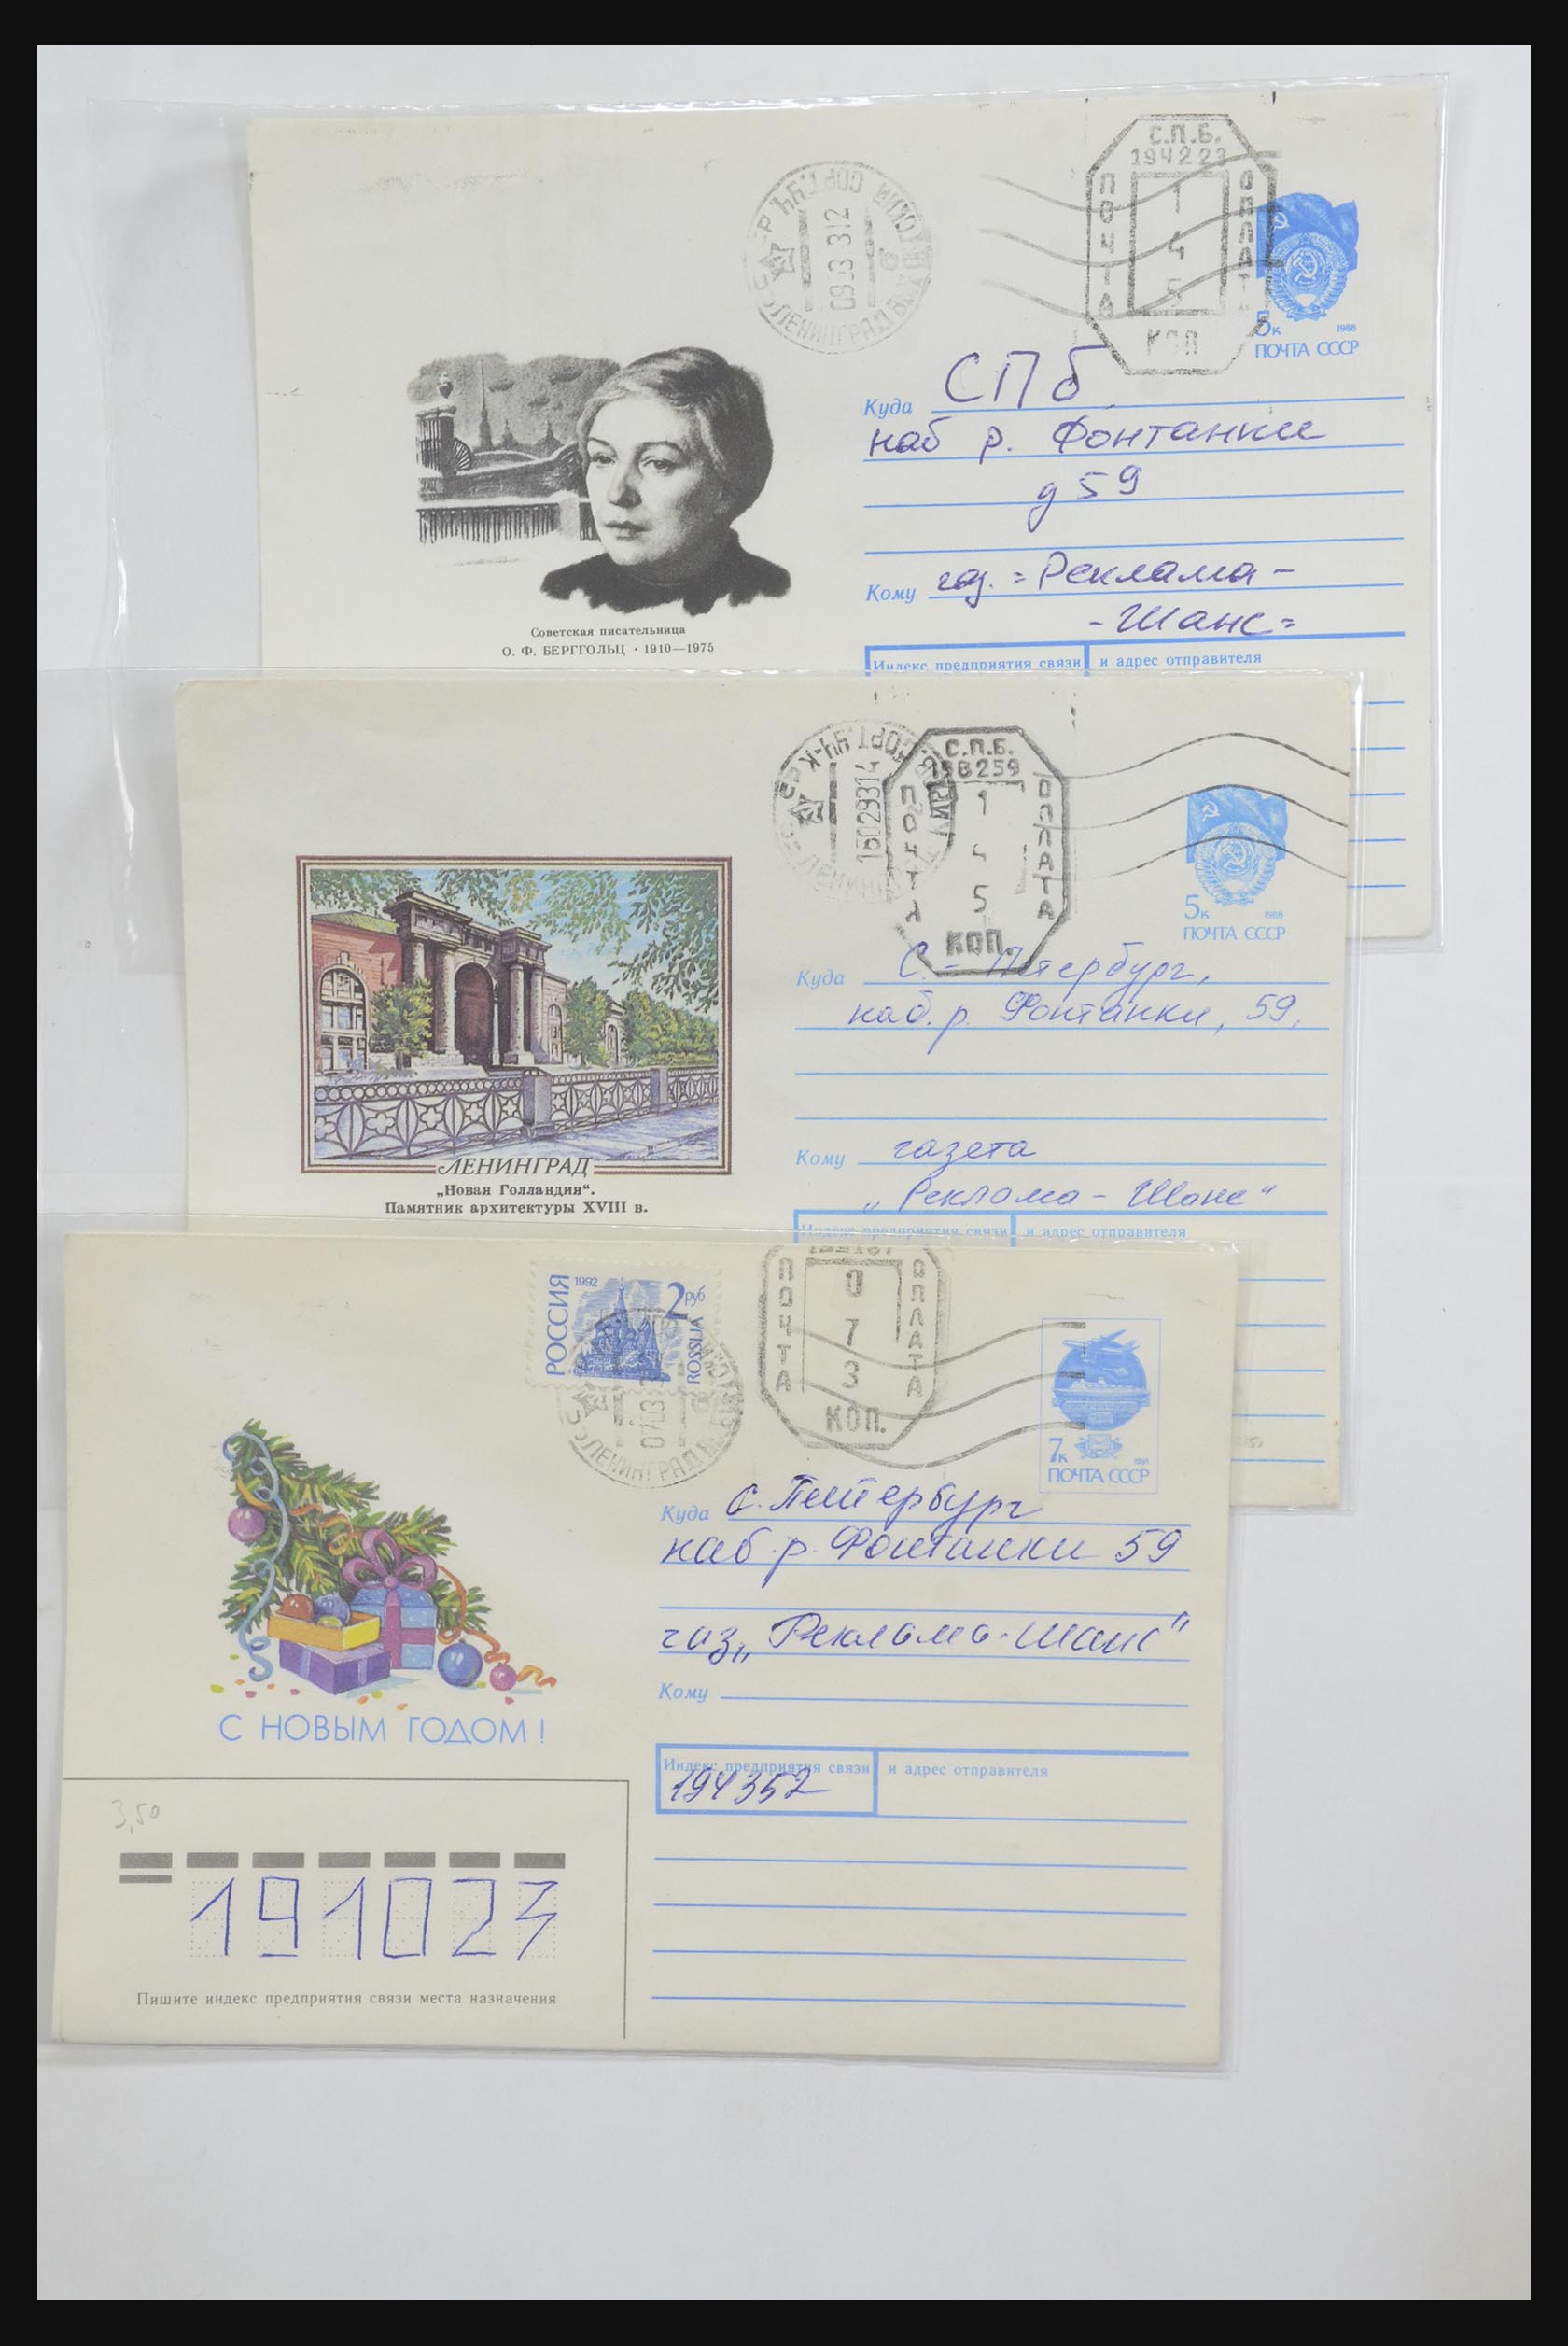 С.П.Б.
194223
ПОЧТА
ОПЛАТА
1
4
5
КОП
ЛЕНИНГРАД
5к
1988
ПОЧТА СССР
Куда СПб
наб р. Фонтанки
д 59
Кому газ. =Реклама-
-Шанс=
Советская писательница
О. Ф. БЕРГГОЛЬЦ • 1910—1975
Индекс предприятия связи
и адрес отправителя
С.П.Б.
ПОЧТА
ОПЛАТА
1
5
КОП.
5к
1988
ПОЧТА СССР
Куда С.-Петербург,
наб. р. Фонтанки, 59,
Кому газета
„Реклама-Шанс"
ЛЕНИНГРАД
„Новая Голландия“.
Памятник архитектуры XVIII в.
Индекс предприятия связи
и адрес отправителя
РОССИЯ
1992
2 руб
ROSSIJA
ЛЕНИНГРАД
ПОЧТА
ОПЛАТА
0
7
3
КОП.
7к
1991
ПОЧТА СССР
Куда С. Петербург
наб. р. Фонтанки 59
газ „Реклама-Шанс"
Кому
С НОВЫМ ГОДОМ!
Индекс предприятия связи
и адрес отправителя
194357
3,50
191023
Пишите индекс предприятия связи места назначения